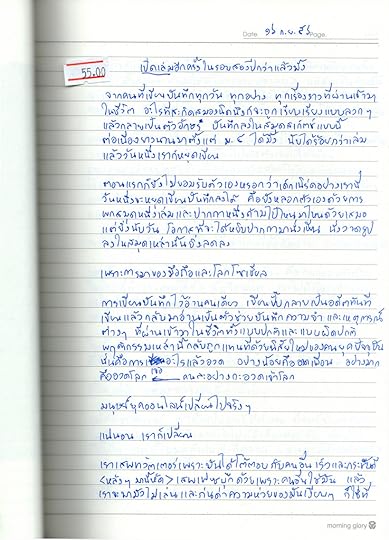 Date ๑๖ ก.ย. ๕๖ Page.
55.00
เปิดเล่มอีกครั้งในรอบสองปีกว่าแล้วมั้ง
จากคนที่เขียนบันทึกทุกวัน ทุกอย่าง ทุกเรื่องราวที่ผ่านเข้ามา
ในชีวิต อะไรที่สะกิดสมองนิดนึงก็จะถูกเรียบเรียงแบบลวก ๆ
แล้วกลายเป็นตัวอักษร บันทึกลงในสมุดสเก็ตช์แบบนี้
ต่อเนื่องยาวนานมาตั้งแต่ ม. ได้มั้ง นับได้ร้อยกว่าเล่ม
แล้ววันหนึ่งเราก็หยุดเขียน
ตอนแรกก็ยังไม่ยอมรับตัวเองหรอกว่าเด็กเนิร์ดอย่างเรานี่
วันหนึ่งจะหยุดเขียนบันทึกลงได้ คือยังหลอกตัวเองด้วยการ
พกสมุดหนึ่งเล่มและปากกาหนึ่งด้ามไปไหนมาไหนด้วยเสมอ
แต่ยิ่งนับวัน โอกาสที่จะได้หยิบปากกามานั่งเขียน นั่งวาดรูป
ลงในสมุดเหล่านั้นยิ่งลดลง
เพราะการมาของมือถือและโลกโซเชียล
การเขียนบันทึกไว้อ่านคนเดียว เขียนขึ้นกลายเป็นอดีตทันที
เขียนแล้วกลับมาอ่านเป็นตัวช่วยบันทึกความจำ และเหตุการณ์
ต่างๆ ที่ผ่านเข้ามาในชีวิตทั้งแบบปกติและแบบผิดปกติ
พฤติกรรมเหล่านี้กลับถูกแทนที่ด้วยนิสัยใหม่ของคนยุคปัจจุบัน
นั่นคือการ อะไรแล้วอวด อย่างน้อยคืออวดเพื่อน อย่างมาก
คืออวดโลก คนละอย่างกะอวดเจ้าโลก
มนุษย์ยุคออนไลน์เปลี่ยนไปจริงๆ
แน่นอน เราก็เปลี่ยน
เราเสพทวิตเตอร์เพราะมันได้โต้ตอบกับคนอื่น เร็วและกระชับดี
<หลังๆ มานี้ยัด> เสพเฟซบุ๊กด้วยเพราะคนอื่นใช้มัน แล้ว
เราจะมามัวไม่เล่น และก่นด่าความห่วยของมันเงียบๆ ก็ใช่ที่
morning glory